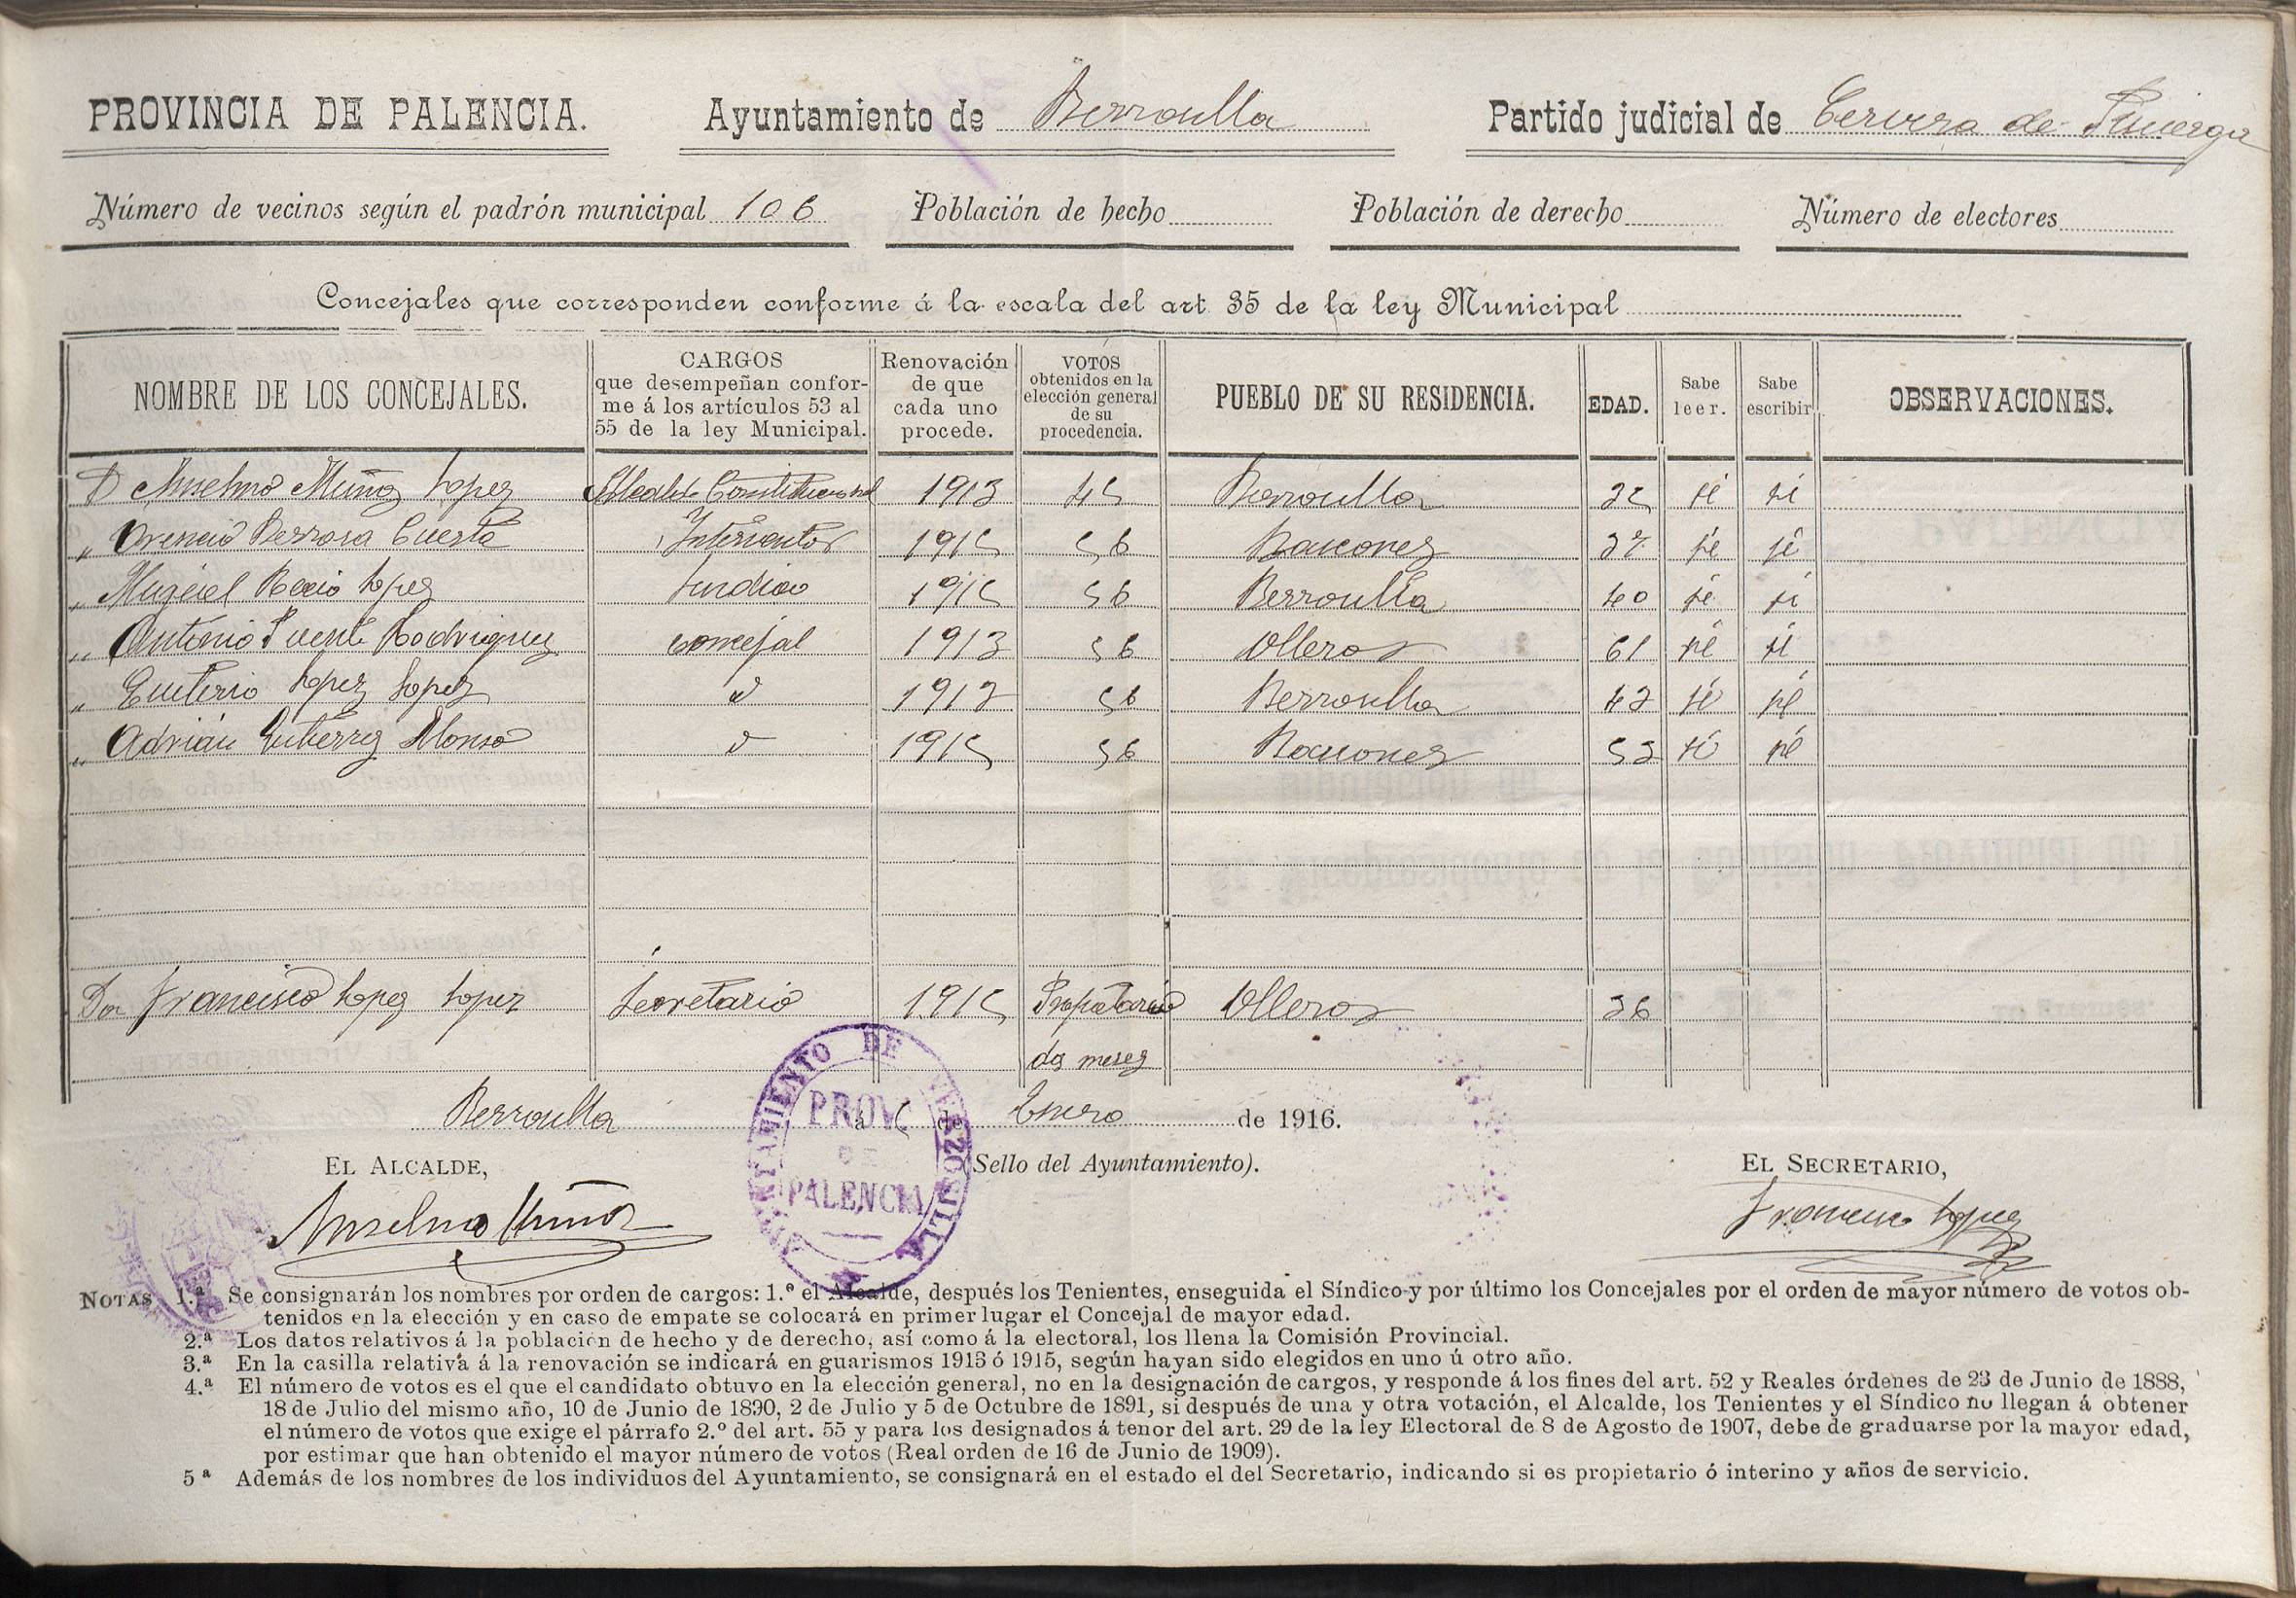 PROVINCIA DE PALENCIA. Ayuntamiento de Berzosilla Partido judicial de Cervera de Pisuerga
Número de vecinos según el padrón municipal 106 Población de hecho Población de derecho Número de electores
Concejales que corresponden conforme á la escala del art 35 de la ley Municipal
NOMBRE DE LOS CONCEJALES.
CARGOS
que desempeñan confor-
me á los artículos 53 al
55 de la ley Municipal.
Renovación
de que
cada uno
procede.
VOTOS
obtenidos en la
elección general
de su
procedencia.
PUEBLO DE SU RESIDENCIA.
EDAD.
Sabe
leer.
Sabe
escribir.
OBSERVACIONES.
D Anselmo Muñoz Lopez Alcalde Constitucional 1913 45 Berzosilla si si
" Orencio Berzosa Cuesta Interventor 1915 56 Bascones 37 si si
" Miguel Recio Lopez Sindico 1915 56 Berzosilla 40 si si
" Antonio Puente Rodriguez concejal 1913 56 Olleros 61 si si
" Euterio Lopez Lopez 56 Berzosilla si si
" Adrián Gutierrez Alonso 1915 56 Bascones si si
Don Francisco Lopez Lopez Secretario 1915 Propietario Olleros
dos meses
Berzosilla á 5 de Enero de 1916.
EL ALCALDE, (Sello del Ayuntamiento). EL SECRETARIO,
Anselmo Muñoz Francisco Lopez
AYUNTAMIENTO DE BERZOSILLA
PROV.
DE
PALENCIA
NOTAS 1.ª Se consignarán los nombres por orden de cargos: 1.º el Alcalde, después los Tenientes, enseguida el Síndico y por último los Concejales por el orden de mayor número de votos ob-
tenidos en la elección y en caso de empate se colocará en primer lugar el Concejal de mayor edad.
2.ª Los datos relativos á la población de hecho y de derecho, así como á la electoral, los llena la Comisión Provincial.
3.ª En la casilla relativa á la renovación se indicará en guarismos 1913 ó 1915, según hayan sido elegidos en uno ú otro año.
4.ª El número de votos es el que el candidato obtuvo en la elección general, no en la designación de cargos, y responde á los fines del art. 52 y Reales órdenes de 23 de Junio de 1888,
18 de Julio del mismo año, 10 de Junio de 1890, 2 de Julio y 5 de Octubre de 1891, si después de una y otra votación, el Alcalde, los Tenientes y el Síndico no llegan á obtener
el número de votos que exige el párrafo 2.º del art. 55 y para los designados á tenor del art. 29 de la ley Electoral de 8 de Agosto de 1907, debe de graduarse por la mayor edad,
por estimar que han obtenido el mayor número de votos (Real orden de 16 de Junio de 1909).
5 ª Además de los nombres de los individuos del Ayuntamiento, se consignará en el estado el del Secretario, indicando si es propietario ó interino y años de servicio.